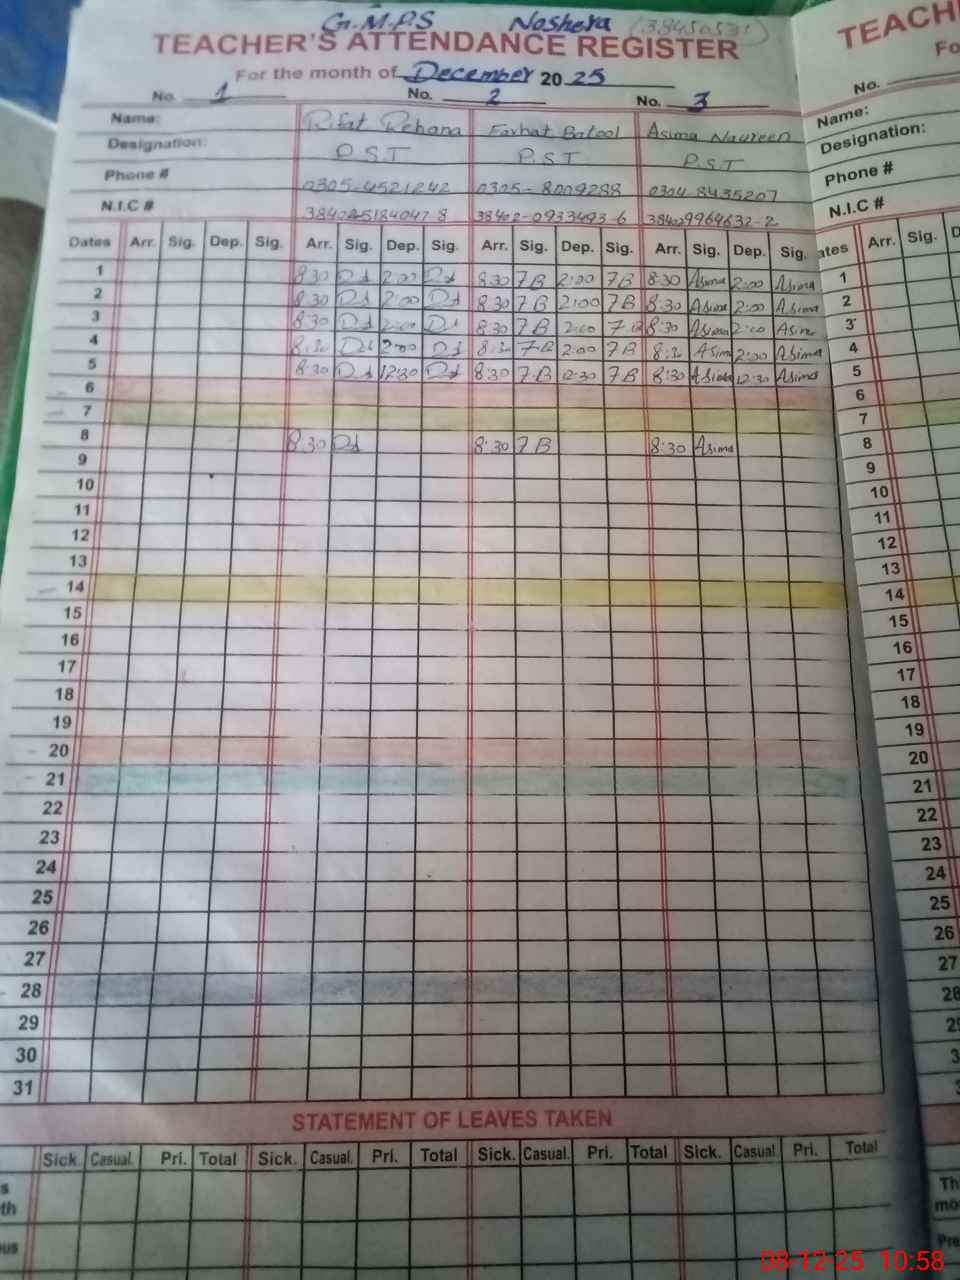 G.M.P.S Noshera (38450531)
TEACHER'S ATTENDANCE REGISTER
For the month of December 2025
No. 1 No. 2 No. 3
Name: Rifat Rehana Farhat Batool Asima Naureen
Designation: P.S.T P.S.T P.S.T
Phone # 0305-4521242 0305-8009288 0304-8435207
N.I.C # 38402-0933493-6
Dates Arr. Sig. Dep. Sig. Arr. Sig. Dep. Sig. Arr. Sig. Dep. Sig. Arr. Sig. Dep. Sig.
1 8:30 2:00 8:30 7B 2:00 7B 8:30 Asima 2:00 Asima
2 8:30 2:00 8:30 7B 2:00 7B 8:30 Asima 2:00 Asima
3 8:30 2:00 8:30 7B 2:00 7B 8:30 Asima 2:00 Asima
4 8:30 2:00 8:30 7B 2:00 7B 8:30 Asima 2:00 Asima
5 8:30 12:30 8:30 7B 12:30 7B 8:30 Asima 12:30 Asima
6
7
8 8:30 8:30 7B 8:30 Asima
9
10
11
12
13
14
15
16
17
18
19
20
21
22
23
24
25
26
27
28
29
30
31
STATEMENT OF LEAVES TAKEN
Sick. Casual. Pri. Total Sick. Casual. Pri. Total Sick. Casual. Pri. Total Sick. Casual. Pri. Total
TEACH
Fo
No.
Name:
Designation:
Phone #
N.I.C #
ates Arr. Sig. D
1
2
3
4
5
6
7
8
9
10
11
12
13
14
15
16
17
18
19
20
21
22
23
24
25
26
27
28
08-12-25 10:58